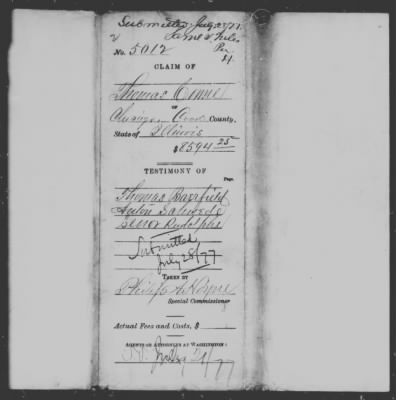 Submitted July 28/77.
No. 5012
CLAIM OF
Thomas
OF
Cook County,
State of Illinois
$8594 25
TESTIMONY OF
Page.
Thomas Barrfield
Anton
Rudolphe
Submitted
July 28/77
TAKEN BY
Philip A. Hoyne
Special Commissioner
Actual Fees and Costs, $
AGENTS OR ATTORNEYS AT WASHINGTON:
July 28/77